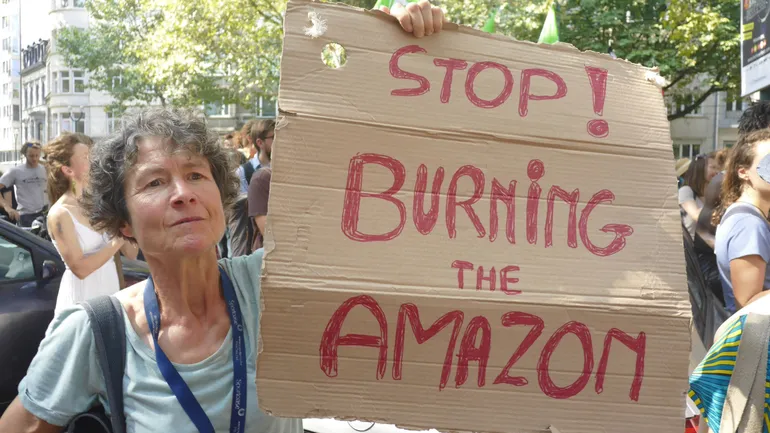 STOP!
BURNiNG
THE
AMAZON